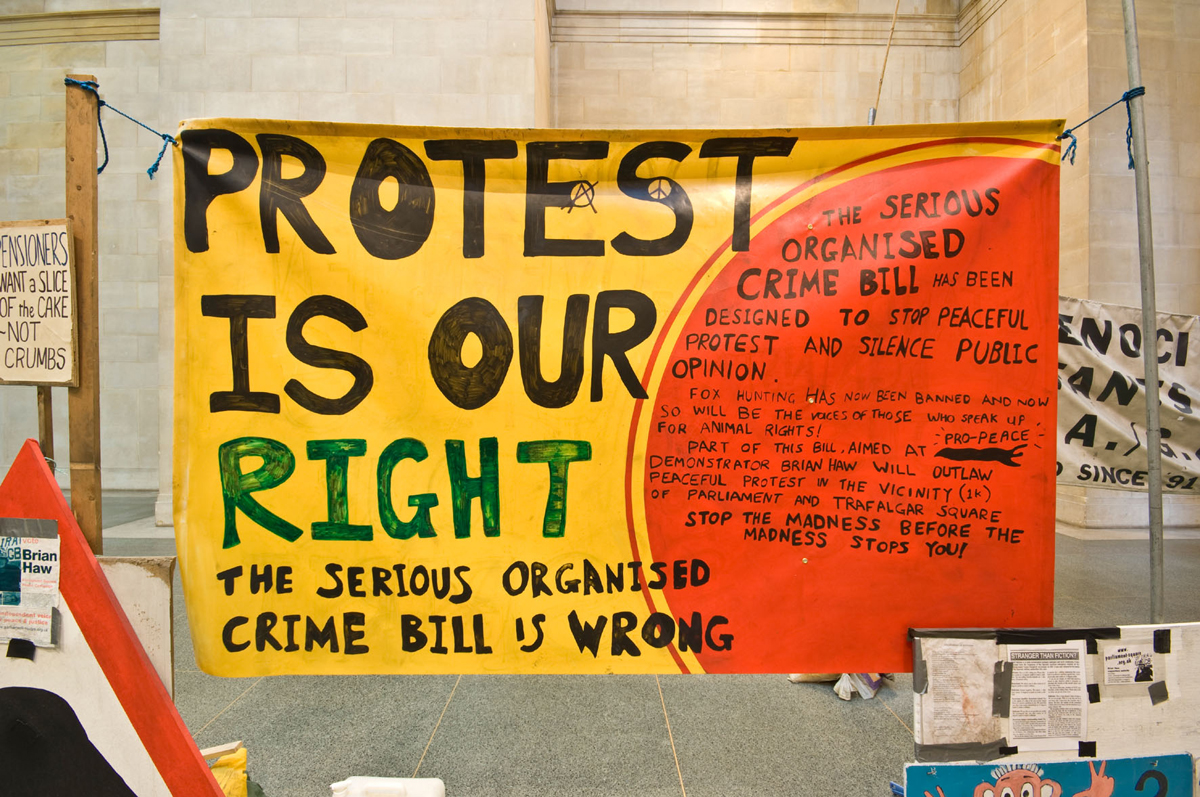 PROTEST
IS OUR
RIGHT
THE SERIOUS ORGANISED
CRIME BILL IS WRONG
THE SERIOUS
ORGANISED
CRIME BILL HAS BEEN
DESIGNED TO STOP PEACEFUL
PROTEST AND SILENCE PUBLIC
OPINION.
FOX HUNTING HAS NOW BEEN BANNED AND NOW
SO WILL BE THE VOICES OF THOSE WHO SPEAK UP
FOR ANIMAL RIGHTS!
PRO-PEACE
PART OF THIS BILL, AIMED AT
DEMONSTRATOR BRIAN HAW WILL OUTLAW
PEACEFUL PROTEST IN THE VICINITY (1K)
OF PARLIAMENT AND TRAFALGAR SQUARE
STOP THE MADNESS BEFORE THE
MADNESS STOPS YOU!
PENSIONERS
WANT a SLICE
OF the CAKE
-NOT
CRUMBS
Brian
Haw
ENOCI
ANTS
A.
SINCE '91
STRANGER THAN FICTION?
www.
?